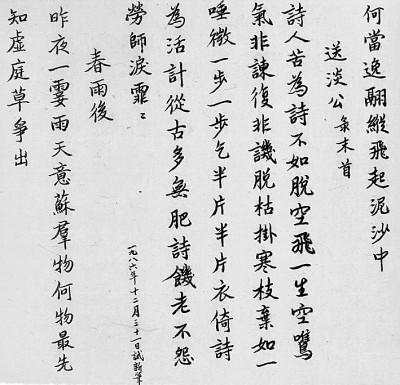 何當逸翮縱飛起泥沙中
送淡公 末首
詩人苦為詩不如脫空飛一生空鷕
氣非諫復非譏脫枯掛寒枝棄如一
唾微一步一步乞半片半片衣倚詩
為活計從古多無肥詩饑老不怨
勞師淚霏〻
一九八六年十二月三十一日試新筆
春雨後
昨夜一霎雨天意蘇羣物何物最先
知虛庭草爭出